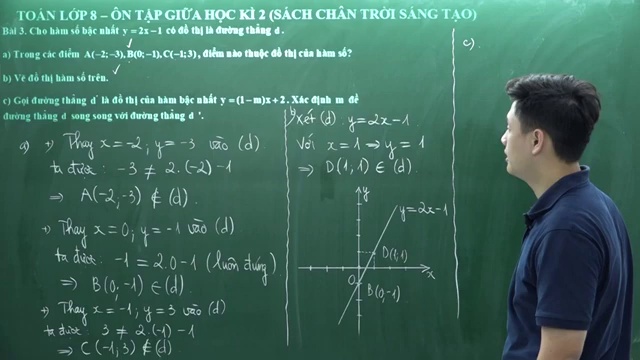 TOÁN LỚP 8 – ÔN TẬP GIỮA HỌC KÌ 2 (SÁCH CHÂN TRỜI SÁNG TẠO)
Bài 3. Cho hàm số bậc nhất y = 2x − 1 có đồ thị là đường thẳng d.
a) Trong các điểm A(−2; −3), B(0; −1), C(−1; 3), điểm nào thuộc đồ thị của hàm số?
b) Vẽ đồ thị hàm số trên.
c) Gọi đường thẳng d' là đồ thị của hàm bậc nhất y = (1 − m)x + 2. Xác định m để
đường thẳng d song song với đường thẳng d '.
a) +) Thay x = -2; y = -3 vào (d)
ta được: -3 ≠ 2.(-2) -1
⇒ A(-2;-3) ∉ (d).
+) Thay x = 0; y = -1 vào (d)
ta được: -1 = 2.0 -1 (luôn đúng)
⇒ B(0,-1) ∈ (d).
+) Thay x = -1; y = 3 vào (d)
ta được: 3 ≠ 2.(-1) -1
⇒ C(-1;3) ∉ (d)
b) Xét (d). y = 2x -1
Với x = 1 ⇒ y = 1
⇒ D(1;1) ∈ (d).
y
y = 2x -1
D(1;1)
O
x
B(0;-1)
c).